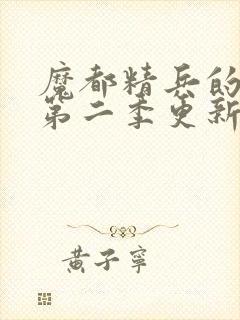 魔都精兵的
第二季更新
黄子宁